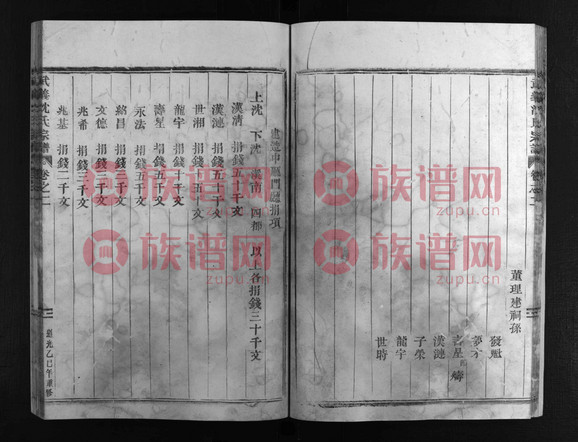 董理建祠孫
發魁
夢才
壽星 疇
漢漣
子榮
龍宇
世時
卷之二
建造中廳門廳捐項
上沈 下沈 溪南 四都 以上各捐錢三十千文
漢清 捐錢五十千文
漢漣 捐錢五十千文
世湘 捐錢五千文
龍宇 捐錢五千文
壽星 捐錢五千文
永法 捐錢五千文
紹昌 捐錢三千文
文德 捐錢三千文
兆希 捐錢三千文
兆基 捐錢二千文
武義沈氏宗譜 卷之二
道光乙巳年重修
族谱网
zupu.cn
族谱网
zupu.cn
族谱网
zupu.cn
族谱网
zupu.cn